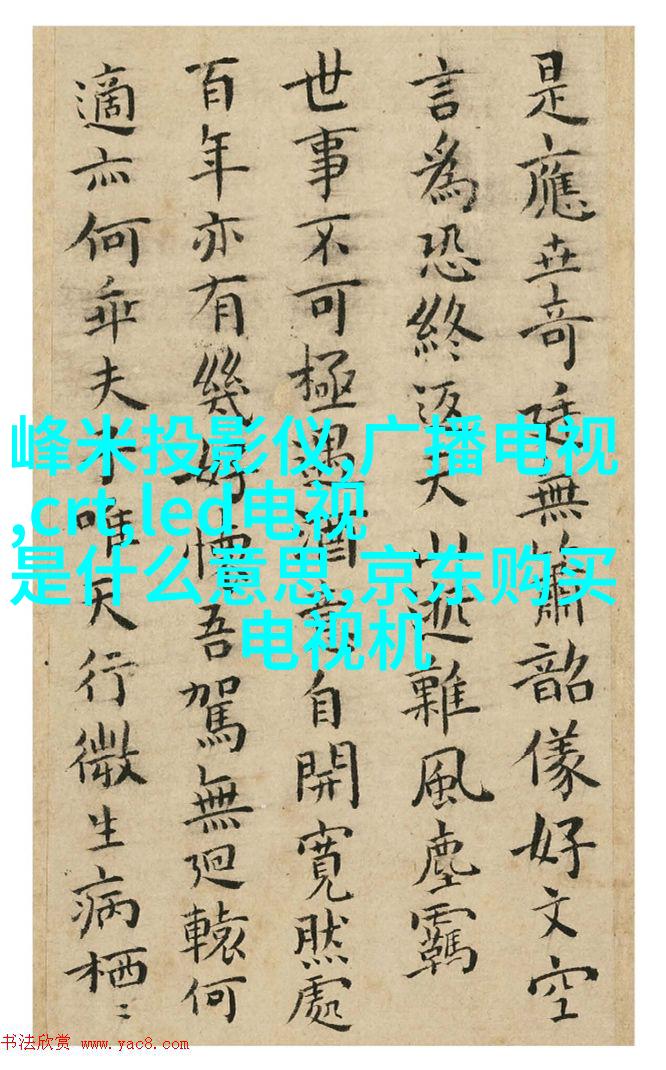 是應奇無簫韶儀好文空
言爲恐終返逃難風塵羈
世事不可極遇酒自開寬然處
百年亦有幾好吾駕無迴轅何
適亦何乖夫唯天行微生病栖〻
峰米投影仪,广播电视
,crt,led电视
是什么意思,京东购买
电视机
书法欣赏 www.yac8.com